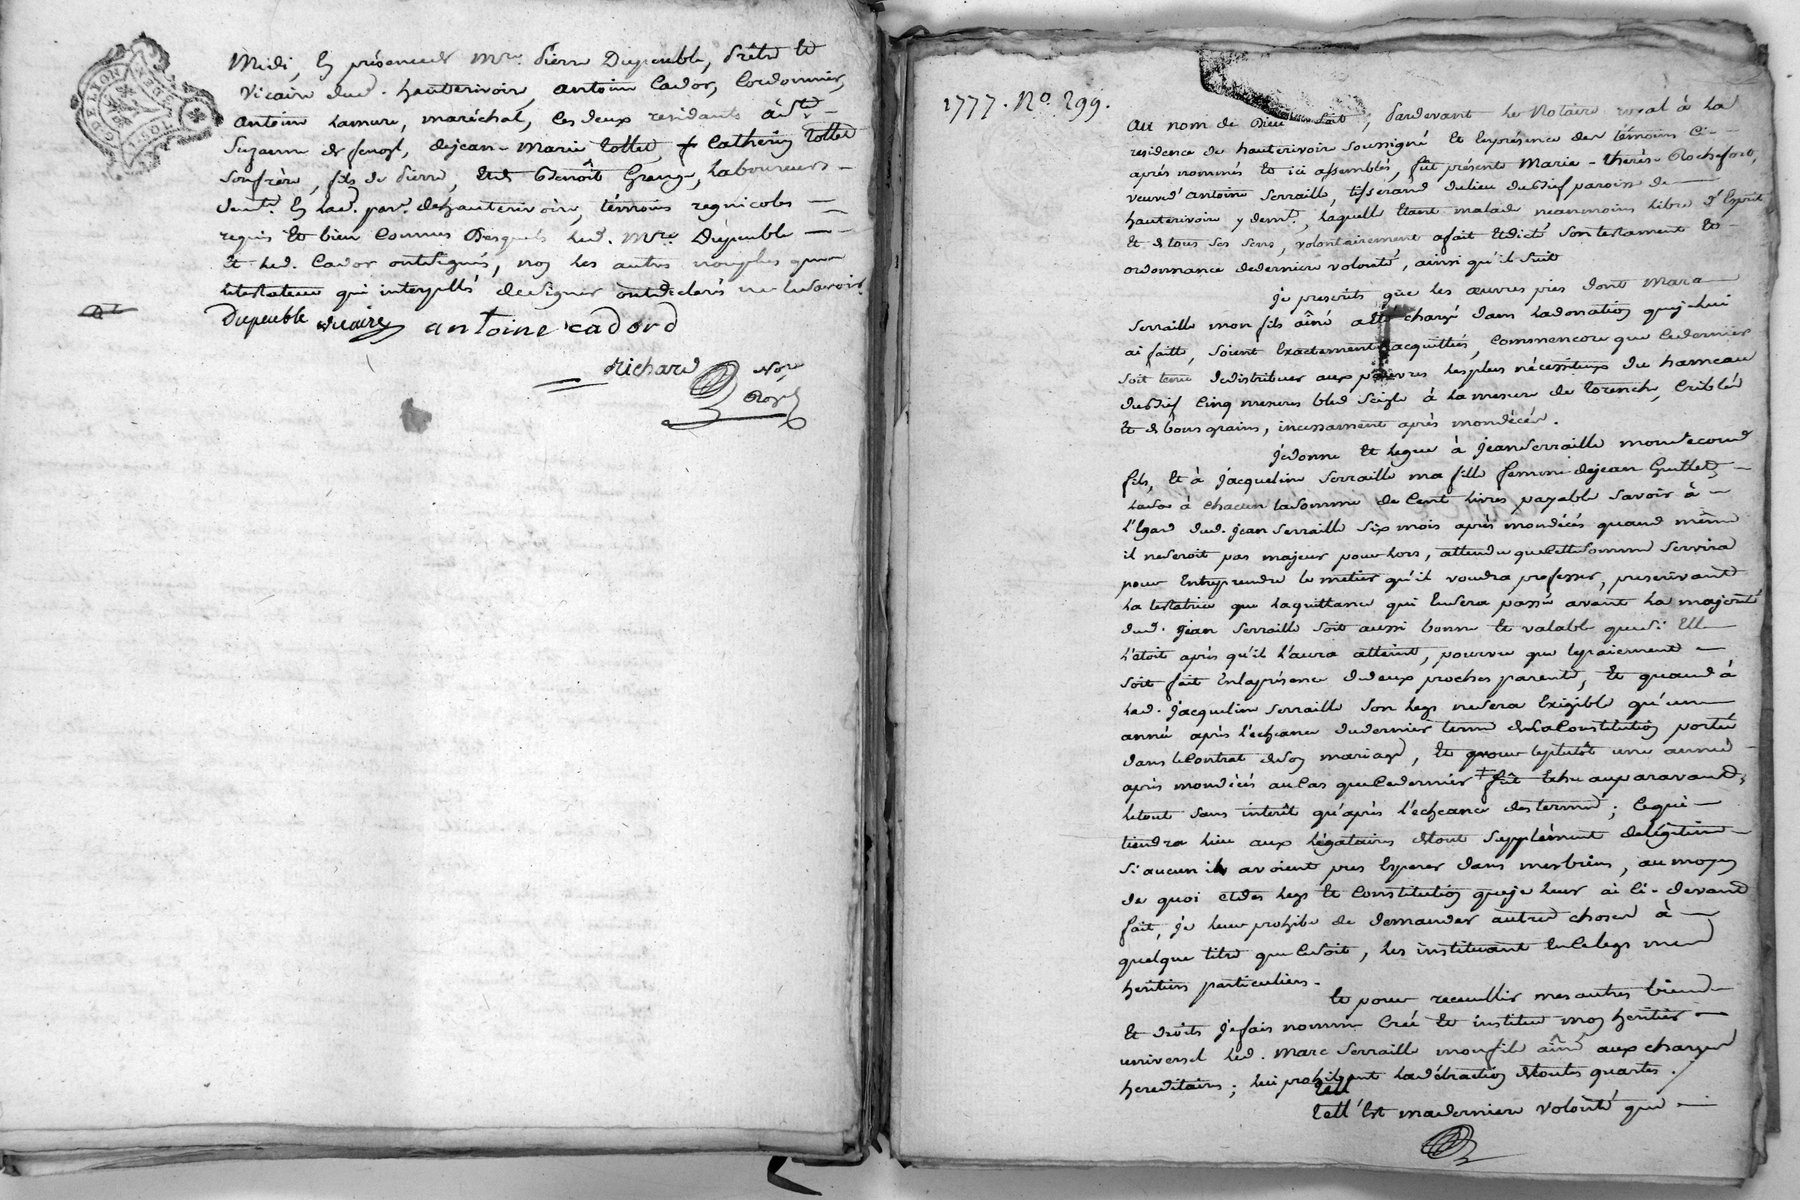 Midi, En présence de Mre. Pierre Dupeuble, Prêtre et
Vicaire dud. hauterivoire, antoine Cador, Cordonnier,
antoine Lamure, maréchal, les deux residants à Ste
Suzanne de fenoyl, dejean-Marie Collet, & Catherin Collet
Son frère, fils de Pierre, Et de Benoît Grange, Laboureurs
demts. En lad. parr. de hauterivoire, témoins regnicoles
requis Et bien Connus Desquels led. Mre. Dupeuble
Et led. Cador ont signés, non les autres non plus que
le testateur qui interpellés de signer ont declarés ne le savoir.
Dupeuble vicaire antoine cadord
Richard Nore
Royl
GDE LION
1777. No. 299.
Au nom de Dieu soit, Pardevant Le Notaire royal à la
residence de hauterivoire soussigné Et En présence des témoins Ci-
après nommés Et ici assemblés, fût présente Marie-thérèse Rochefort,
veuve d'antoine Serraille, tisserand du lieu dussief paroisse de
hauterivoire y demte., laquelle Etant malade neanmoins libre d'Esprit
Et de tous ses sens, volontairement a fait Et dicté son testament Et
ordonnance de derniere volonté, ainsi qu'il suit
Je prescrits que les œuvres pies dont Marc
Serraille mon fils aîné a été chargé dans la donation que je lui
ai faitte, soient Exactement acquittées, Comm'encore que Ce dernier
soit tenu de distribuer aux pauvres les plus nécessiteux du hameau
dussief Cinq mesures bled seigle à la mesure de torenche, Criblée
Et de bons grains, incessament après mon décès.
Je donne Et legue à Jean Serraille mon second
fils, Et à Jacqueline Serraille ma fille femme de jean Guillet,
à chacun la somme de Cent livres payable savoir à
l'Egard dud. jean Serraille six mois après mon décès quand même
il ne seroit pas majeur pour lors, attendu que Cette somme servira
pour Entreprendre le metier qu'il voudra professer, prescrivant
La testatrice que la quittance qui En sera passée avant la majorité
dud. jean Serraille soit aussi bonne Et valable que si Elle
l'étoit après qu'il l'aura atteint, pourvu que le paiement
soit fait En la présence de deux proches parents, Et quand à
lad. Jacqueline Serraille son legs ne sera Exigible qu'une
année après l'echeance du dernier terme de la Constitution portée
dans le Contrat de son mariage, Et pour le plutôt une année
après mon décès au Cas que Ce dernier fût Echu auparavant,
le tout sans interêt qu'après l'echeance des termes; Ce qui
tiendra lieu aux légataires de tout supplément de légitime
si aucun ils avoient pus Esperer dans mes biens, au moyen
de quoi et des legs Et Constitution que je leur ai Ci-devant
fait, je leur prohibe de demander autre choses à
quelque titre que Ce soit, les instituant En Ce legs mes
heritiers particuliers.
Et pour recueillir mes autres biens
Et droits je fais nomme Créé Et institue mon heritier
universel led. Marc Serraille mon fils aîné aux charges
hereditaires; lui prohibant la détraction de toutes quartes.
Tell'Est ma derniere volonté que